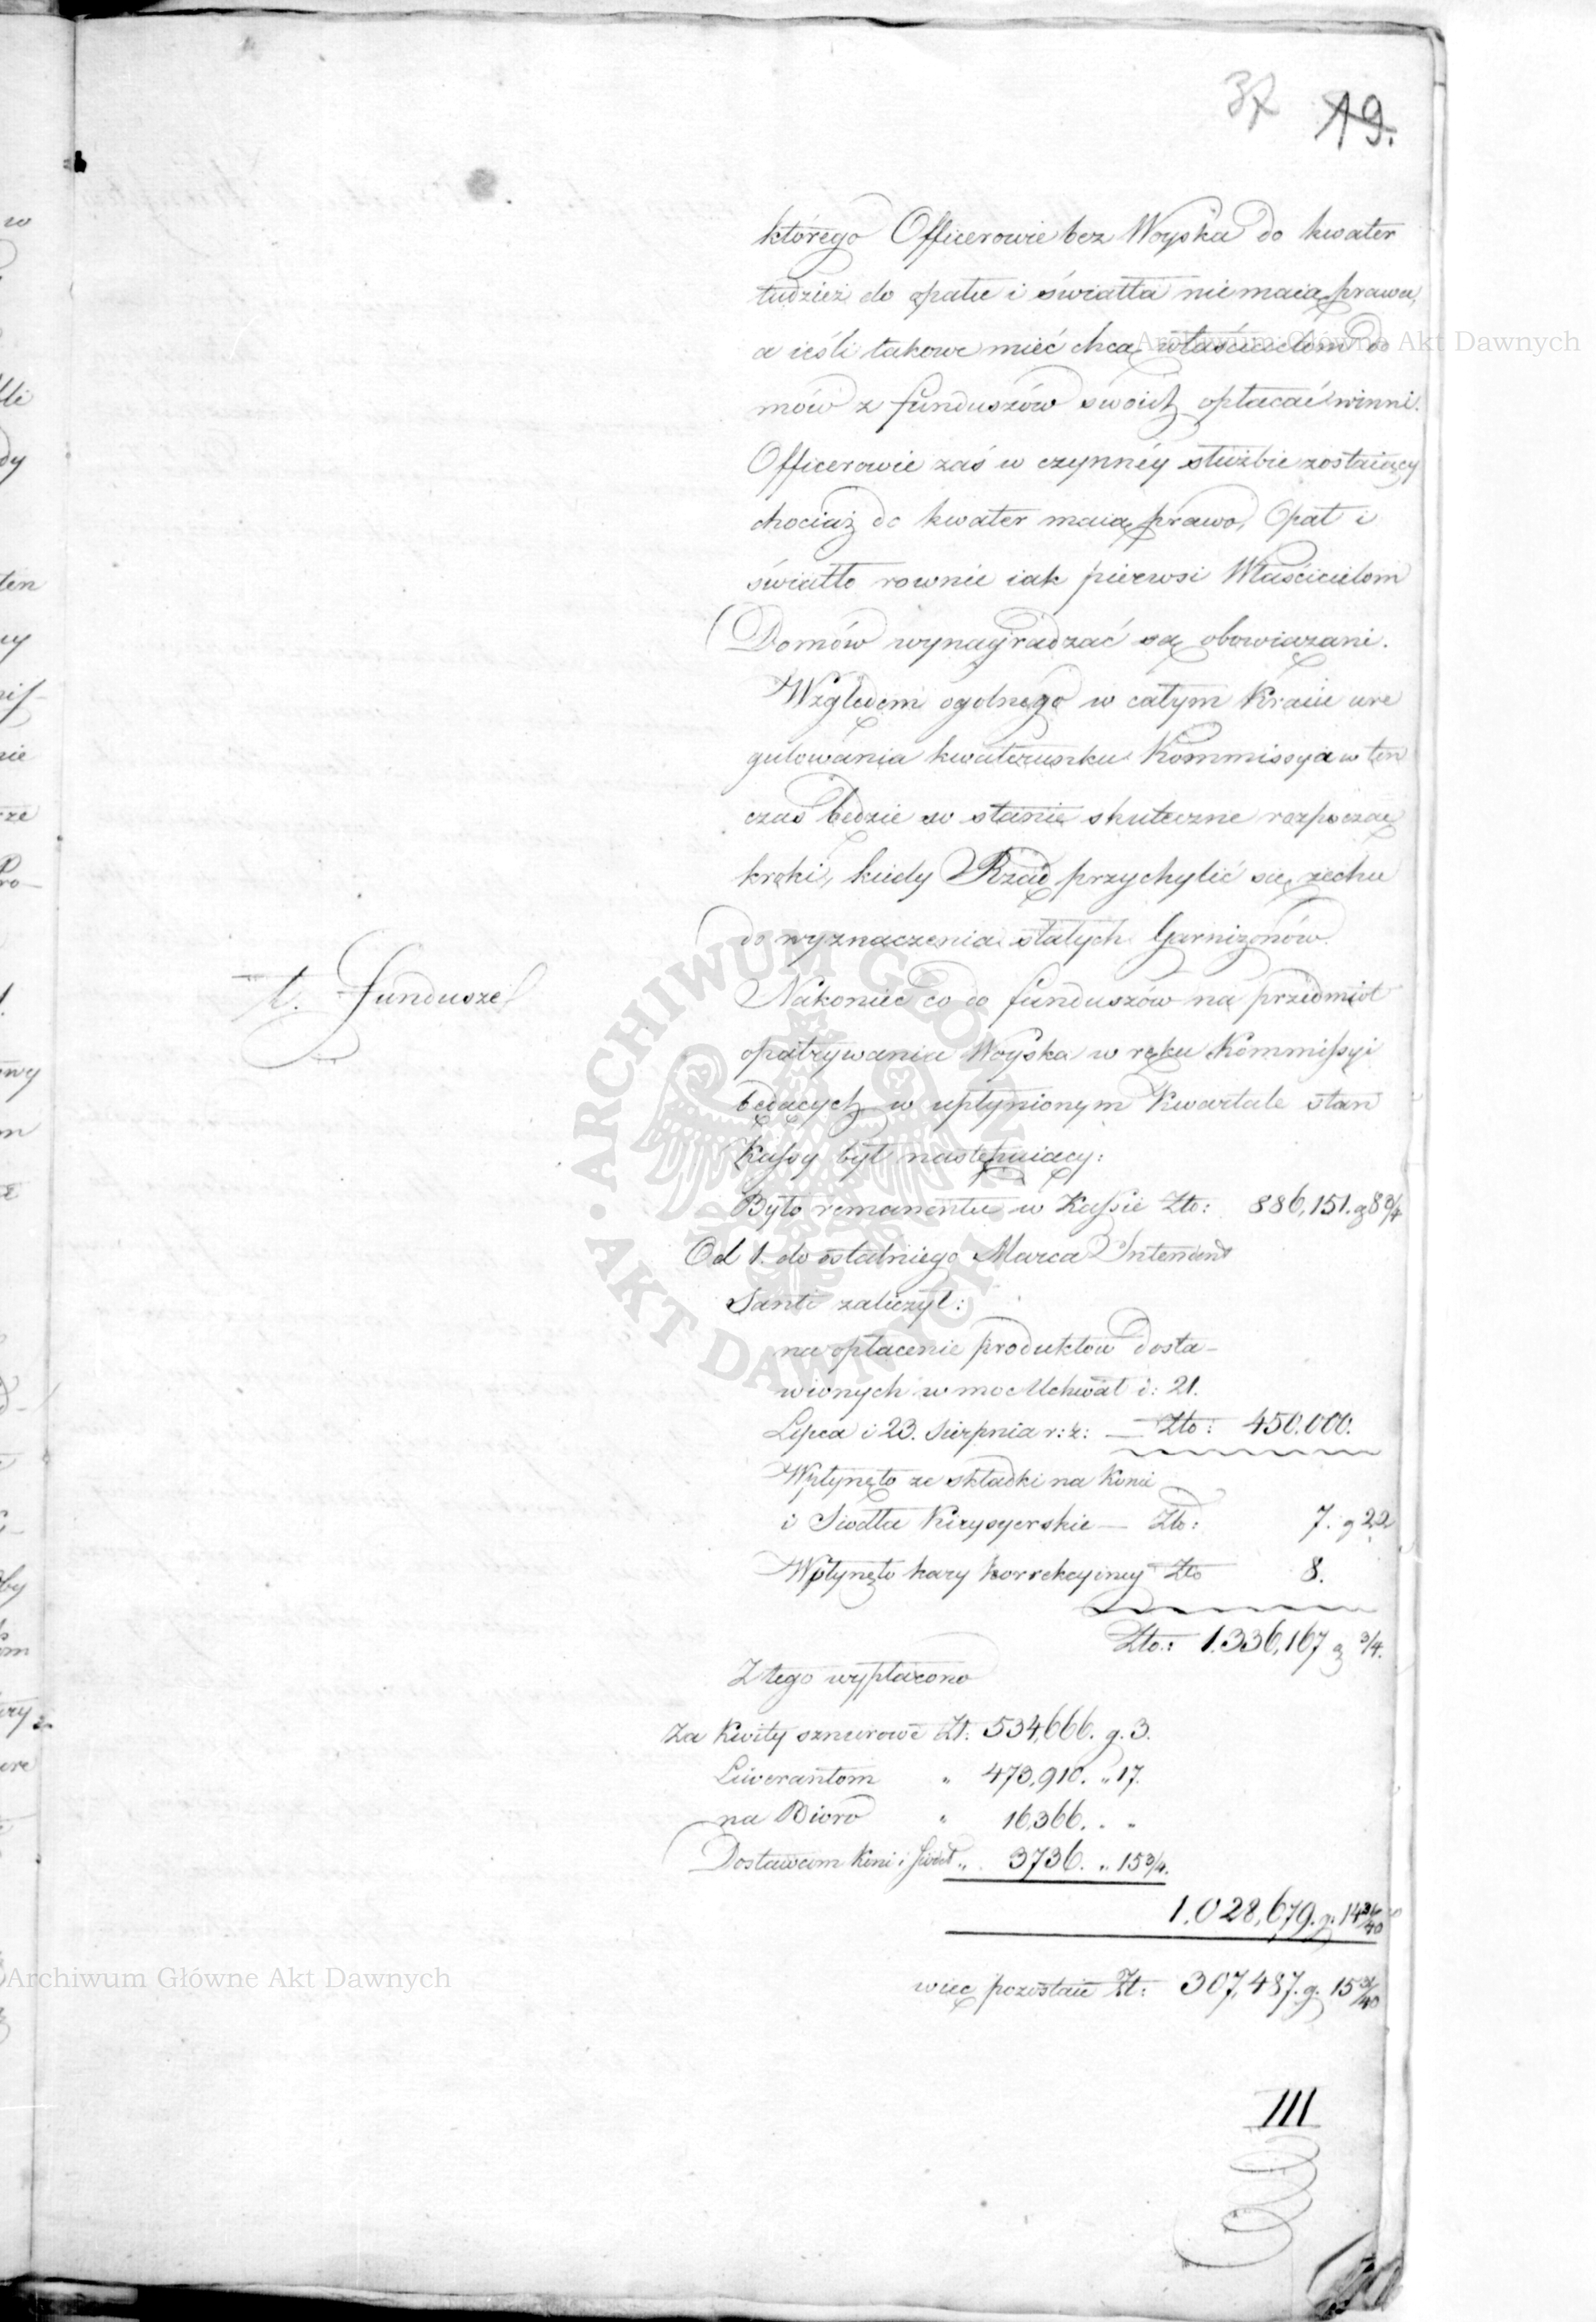 37 19.
którego Officerowie bez Woyska do kwater
tudzież do opału i światła nie maią prawa,
a ieśli takowe mieć chcą właścicielom do
mów z funduszów swoich opłacać winni.
Officerowie zaś w czynnéy służbie zostaiący
chociaż do kwater maią prawo, Opał i
światło rownie iak pierwsi Właścicielom
Domów wynagradzać są obowiązani.
Względem ogolnego w całym Kraiu ure
gulowania kwaterunku Kommissya w ten
czas będzie w stanie skuteczne rozpocząć
kroki, kiedy Rząd przychylić się zechce
do wyznaczenia stałych Garnizonów.
t. Fundusze
Nakoniec co do funduszów na przedmiot
opatrywania Woyska w ręku Kommissyi
będących w upłynionym Kwartale stan
Kassy był następuiący:
Było remanentu w Kassie Złto: 886,151. g 8 3/4
Od 1. do ostatniego Marca Intendent
Santi zaliczył:
na opłacenie produktów dosta-
wionych w moc Uchwał d: 21.
Lipca i 23. Sierpnia r: z: — Złto: 450.000.
Wpłynęło ze składki na Konie
i Siodła Kirysyerskie — Złto: 7. g 22
Wpłynęło kary korrekcyiney Złto 8.
Złto.: 1.336,167 g 3/4.
Z tego wypłacono
Za Kwity sznurowe Zł: 534,666. g. 3.
Liwerantom " 473,910. " 17.
na Bioro " 16,366. " "
Dostawcom Koni i Siodeł " 3736. " 15 3/4.
1,028,679. g. 14 31/40
więc pozostaie Zł: 307,487. g. 15 31/40
III
ARCHIWUM GŁÓWNE AKT DAWNYCH
Archiwum Główne Akt Dawnych
Archiwum Główne Akt Dawnych